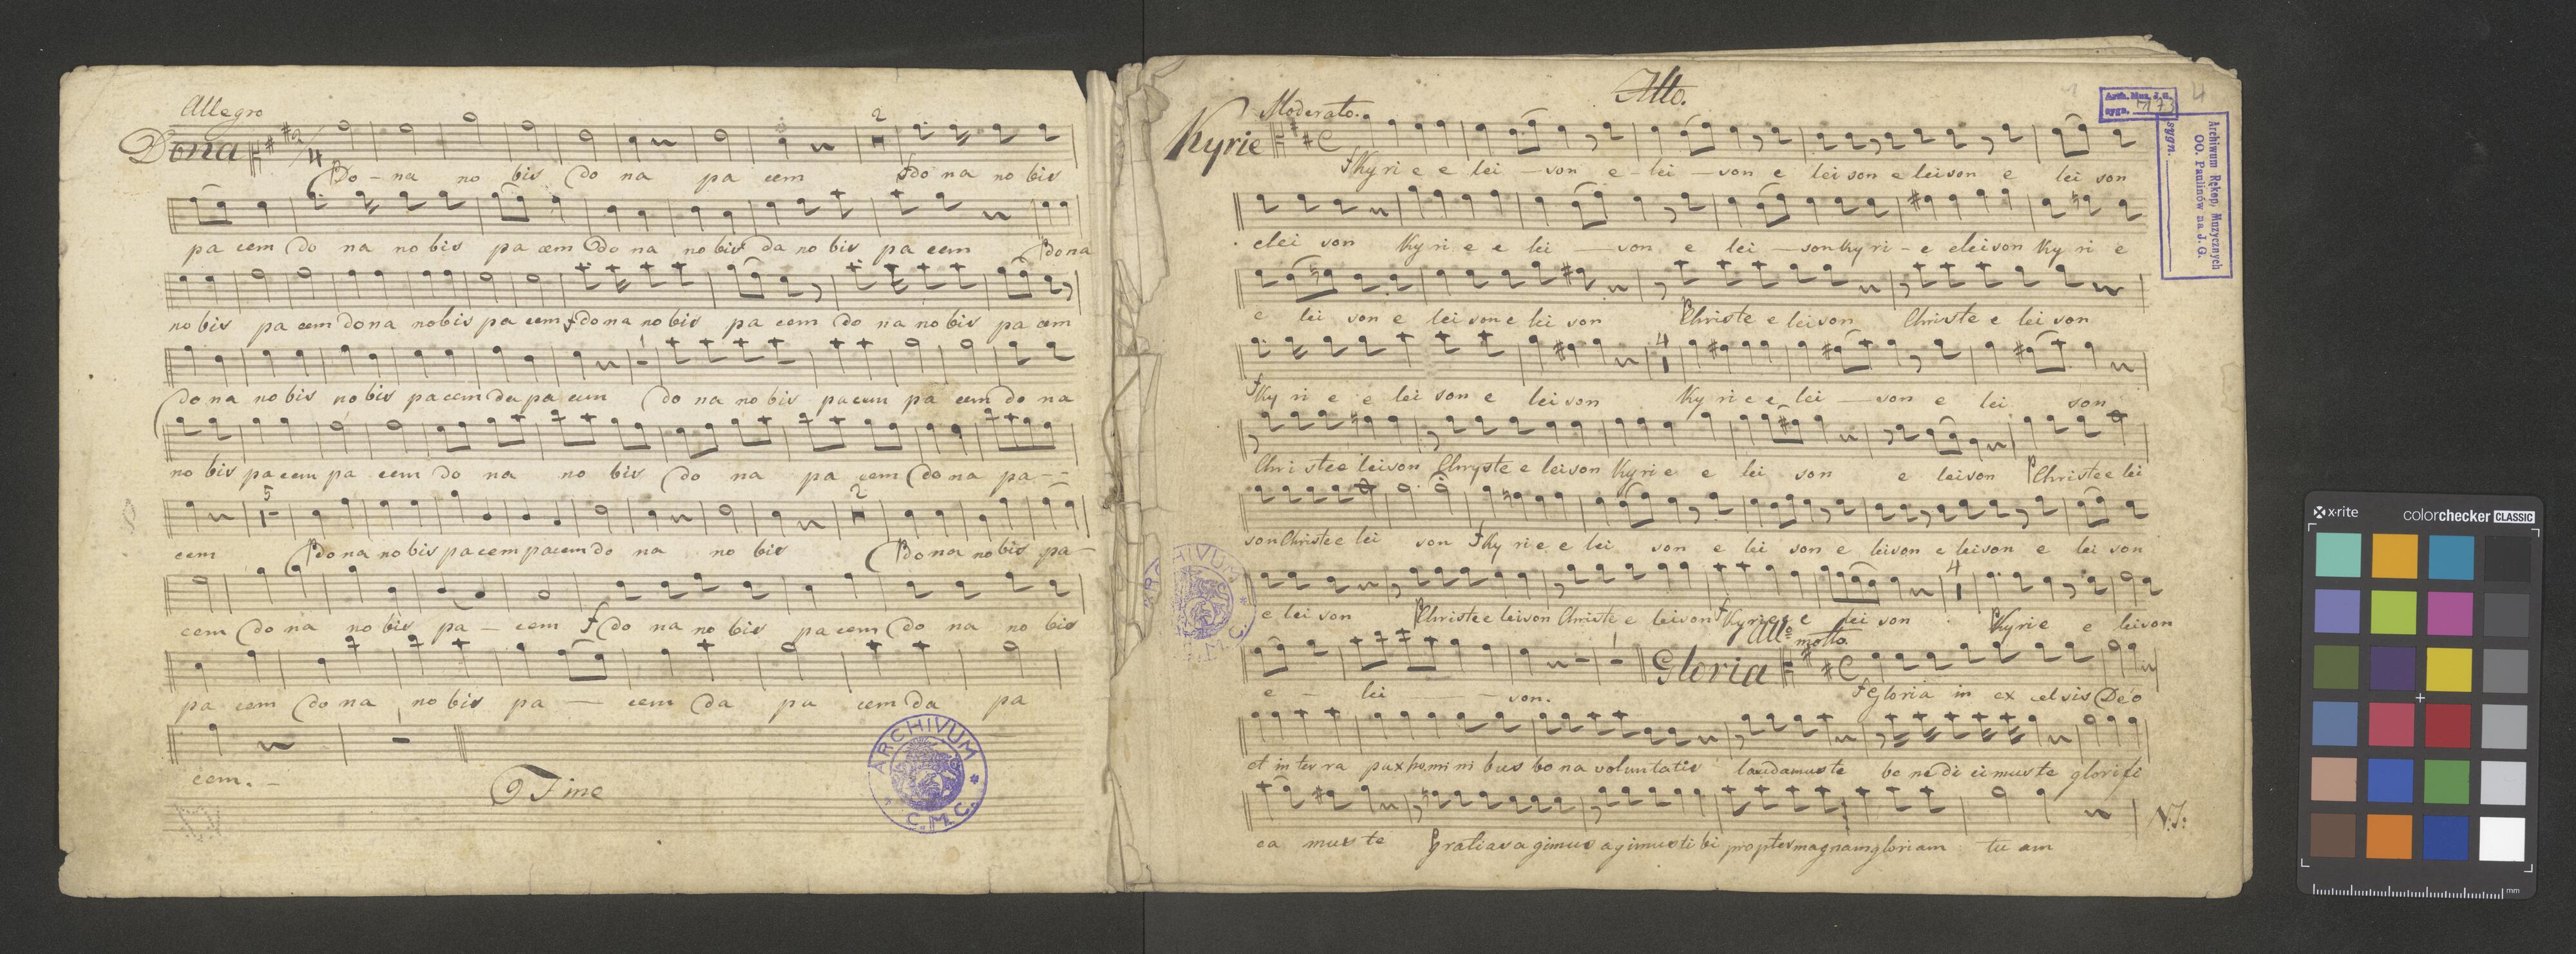 Allegro
Dona 2/4
Do - na no bis do na pa cem do na no bis
pa cem do na no bis pa cem do na no bis da no bis pa cem dona
no bis pa cem dona nobis pa cem f dona no bis pa cem do na no bis pa cem
do na no bis no bis pacem da pa cem do na no bis pacem pa cem do na
no bis pacem pa cem do na no bis do na pa cem dona pa - -
cem dona nobis pacem pacem do na no bis dona nobis pa -
cem do na no bis pa - cem f do na no bis pa cem do na no bis
pa cem do na no bis pa - cem da pa cem da pa
cem. -
Fine
ARCHIVUM
* C.M.C. *
Alto.
4
Arch. Muz. J. G.
sygn.
Archiwum Rękop. Muzycznych
OO. Paulinów na J. G.
sygn.
Moderato.
Kyrie C
f Ky ri e e lei - son e - lei - son e lei son e leison e lei son
elei son Ky ri e e lei - son e lei - son Ky ri - e eleison Ky ri e
e lei son e lei son e lei son Christe e leison Christe e lei son
f Ky ri e e lei son e lei son Ky ri e e lei - son e lei son
Chri stee leison Chryste e leison Kyrie e lei son e leison Christee lei
son Christee lei son f Ky ri e e lei son e lei son e leison e leison e lei son
e lei son Christee leison Christe e leison f Kyrie e lei son Kyrie e leison
e - lei - - son.
Allo molto
Gloria C
f Gloria in ex celsis Deo
et in terra pax homini bus bona voluntatis laudamuste be ne di ci muste glorifi
ca mus te gratias agimus agimus ti bi propter magnam gloriam tu am
x-rite
colorchecker CLASSIC
mm